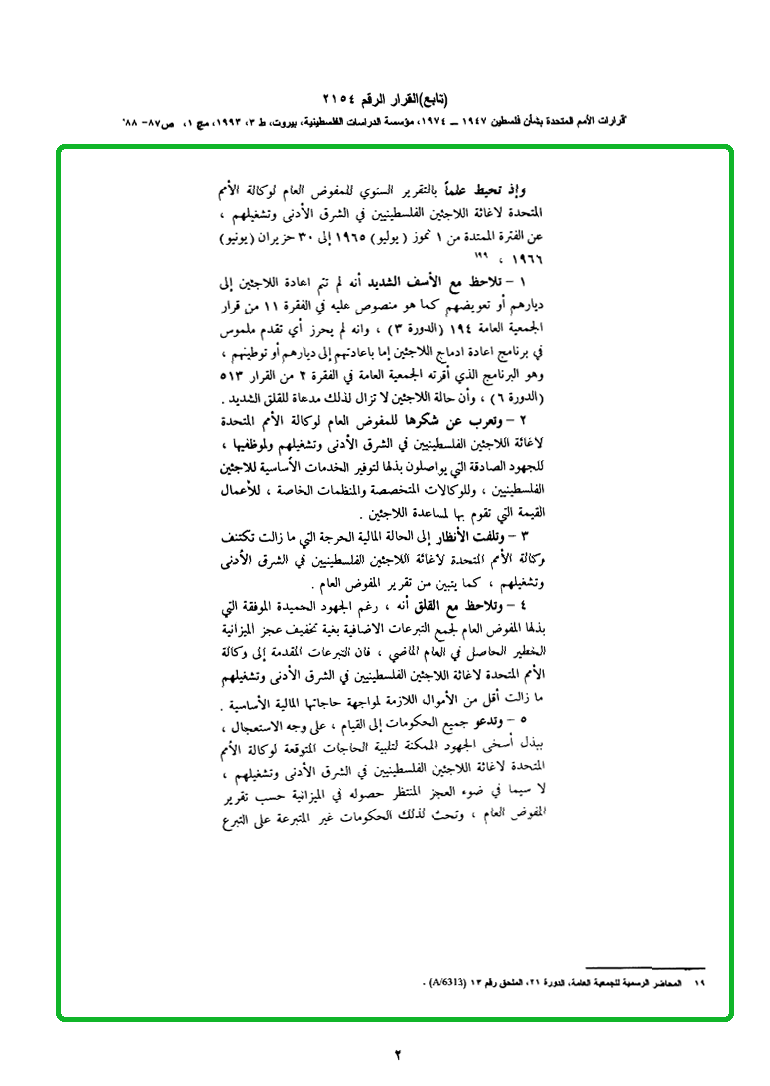 (تابع)القرار الرقم ٢١٥٤
"قرارات الأمم المتحدة بشأن فلسطين ١٩٤٧ ــ ١٩٧٤، مؤسسة الدراسات الفلسطينية، بيروت، ط ٣، ١٩٩٣، مج ١، ص٨٧- ٨٨"
وإذ تحيط علماً بالتقرير السنوي للمفوض العام لوكالة الأمم
المتحدة لاغاثة اللاجئين الفلسطينيين في الشرق الأدنى وتشغيلهم ،
عن الفترة الممتدة من ١ تموز ( يوليو) ١٩٦٥ إلى ٣٠ حزيران (يونيو)
١٩٦٦ ، ١٩٩
١ – تلاحظ مع الأسف الشديد أنه لم تتم اعادة اللاجئين إلى
ديارهم أو تعويضهم كما هو منصوص عليه في الفقرة ١١ من قرار
الجمعية العامة ١٩٤ (الدورة ٣) ، وانه لم يحرز أي تقدم ملموس
في برنامج اعادة ادماج اللاجئين إما باعادتهم إلى ديارهم أو توطينهم ،
وهو البرنامج الذي أقرته الجمعية العامة في الفقرة ٢ من القرار ٥١٣
(الدورة ٦) ، وأن حالة اللاجئين لا تزال لذلك مدعاة للقلق الشديد .
٢ – وتعرب عن شكرها للمفوض العام لوكالة الأمم المتحدة
لاغاثة اللاجئين الفلسطينيين في الشرق الأدنى وتشغيلهم ولموظفيها ،
للجهود الصادقة التي يواصلون بذلها لتوفير الخدمات الأساسية للاجئين
الفلسطينيين ، وللوكالات المتخصصة والمنظمات الخاصة ، للأعمال
القيمة التي تقوم بها لمساعدة اللاجئين .
٣ – وتلفت الأنظار إلى الحالة المالية الحرجة التي ما زالت تكتنف
وكالة الأمم المتحدة لاغاثة اللاجئين الفلسطينيين في الشرق الأدنى
وتشغيلهم ، كما يتبين من تقرير المفوض العام .
٤ – وتلاحظ مع القلق أنه ، رغم الجهود الحميدة الموفقة التي
بذلها المفوض العام لجمع التبرعات الاضافية بغية تخفيف عجز الميزانية
الخطير الحاصل في العام الماضي ، فان التبرعات المقدمة إلى وكالة
الأمم المتحدة لاغاثة اللاجئين الفلسطينيين في الشرق الأدنى وتشغيلهم
ما زالت أقل من الأموال اللازمة لمواجهة حاجاتها المالية الأساسية .
٥ – وتدعو جميع الحكومات إلى القيام ، على وجه الاستعجال ،
ببذل أسخى الجهود الممكنة لتلبية الحاجات المتوقعة لوكالة الأمم
المتحدة لاغاثة اللاجئين الفلسطينيين في الشرق الأدنى وتشغيلهم ،
لا سيما في ضوء العجز المنتظر حصوله في الميزانية حسب تقرير
المفوض العام ، وتحث لذلك الحكومات غير المتبرعة على التبرع
١٩ المحاضر الرسمية للجمعية العامة، الدورة ٢١، الملحق رقم ١٣ (A/6313) .
٢